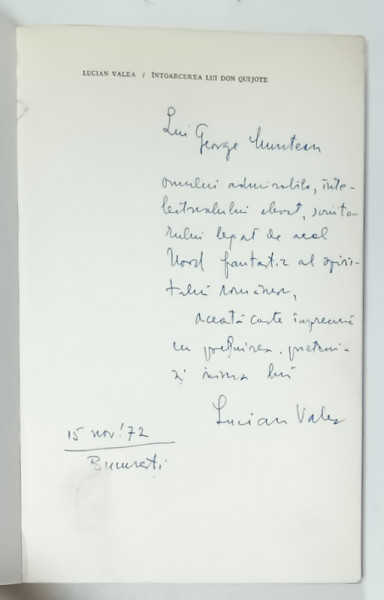 LUCIAN VALEA / ÎNTOARCEREA LUI DON QUIJOTE
Lui George Muntean
omului admirabile, inte-
lectualului elevat, scriito-
rului legat de acel
Nord fantastic al spiri-
tului românesc,
această carte împreună
cu prețuirea, prietenia
și inima lui
Lucian Valea
15 nov. '72
București